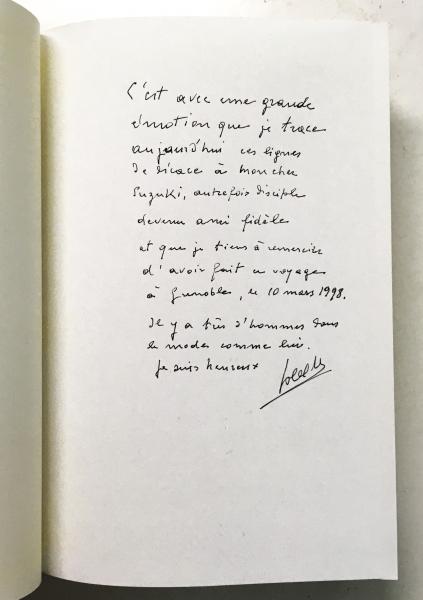 C'est avec une grande
émotion que je trace
aujourd'hui ces lignes
dédicace à mon cher
Suzuki, autrefois disciple
devenu ami fidèle
et que je tiens à remercier
d'avoir fait ce voyage
à Grenoble, le 10 mars 1998.
Il y a très d'hommes dans
le monde comme lui.
Je suis heureux